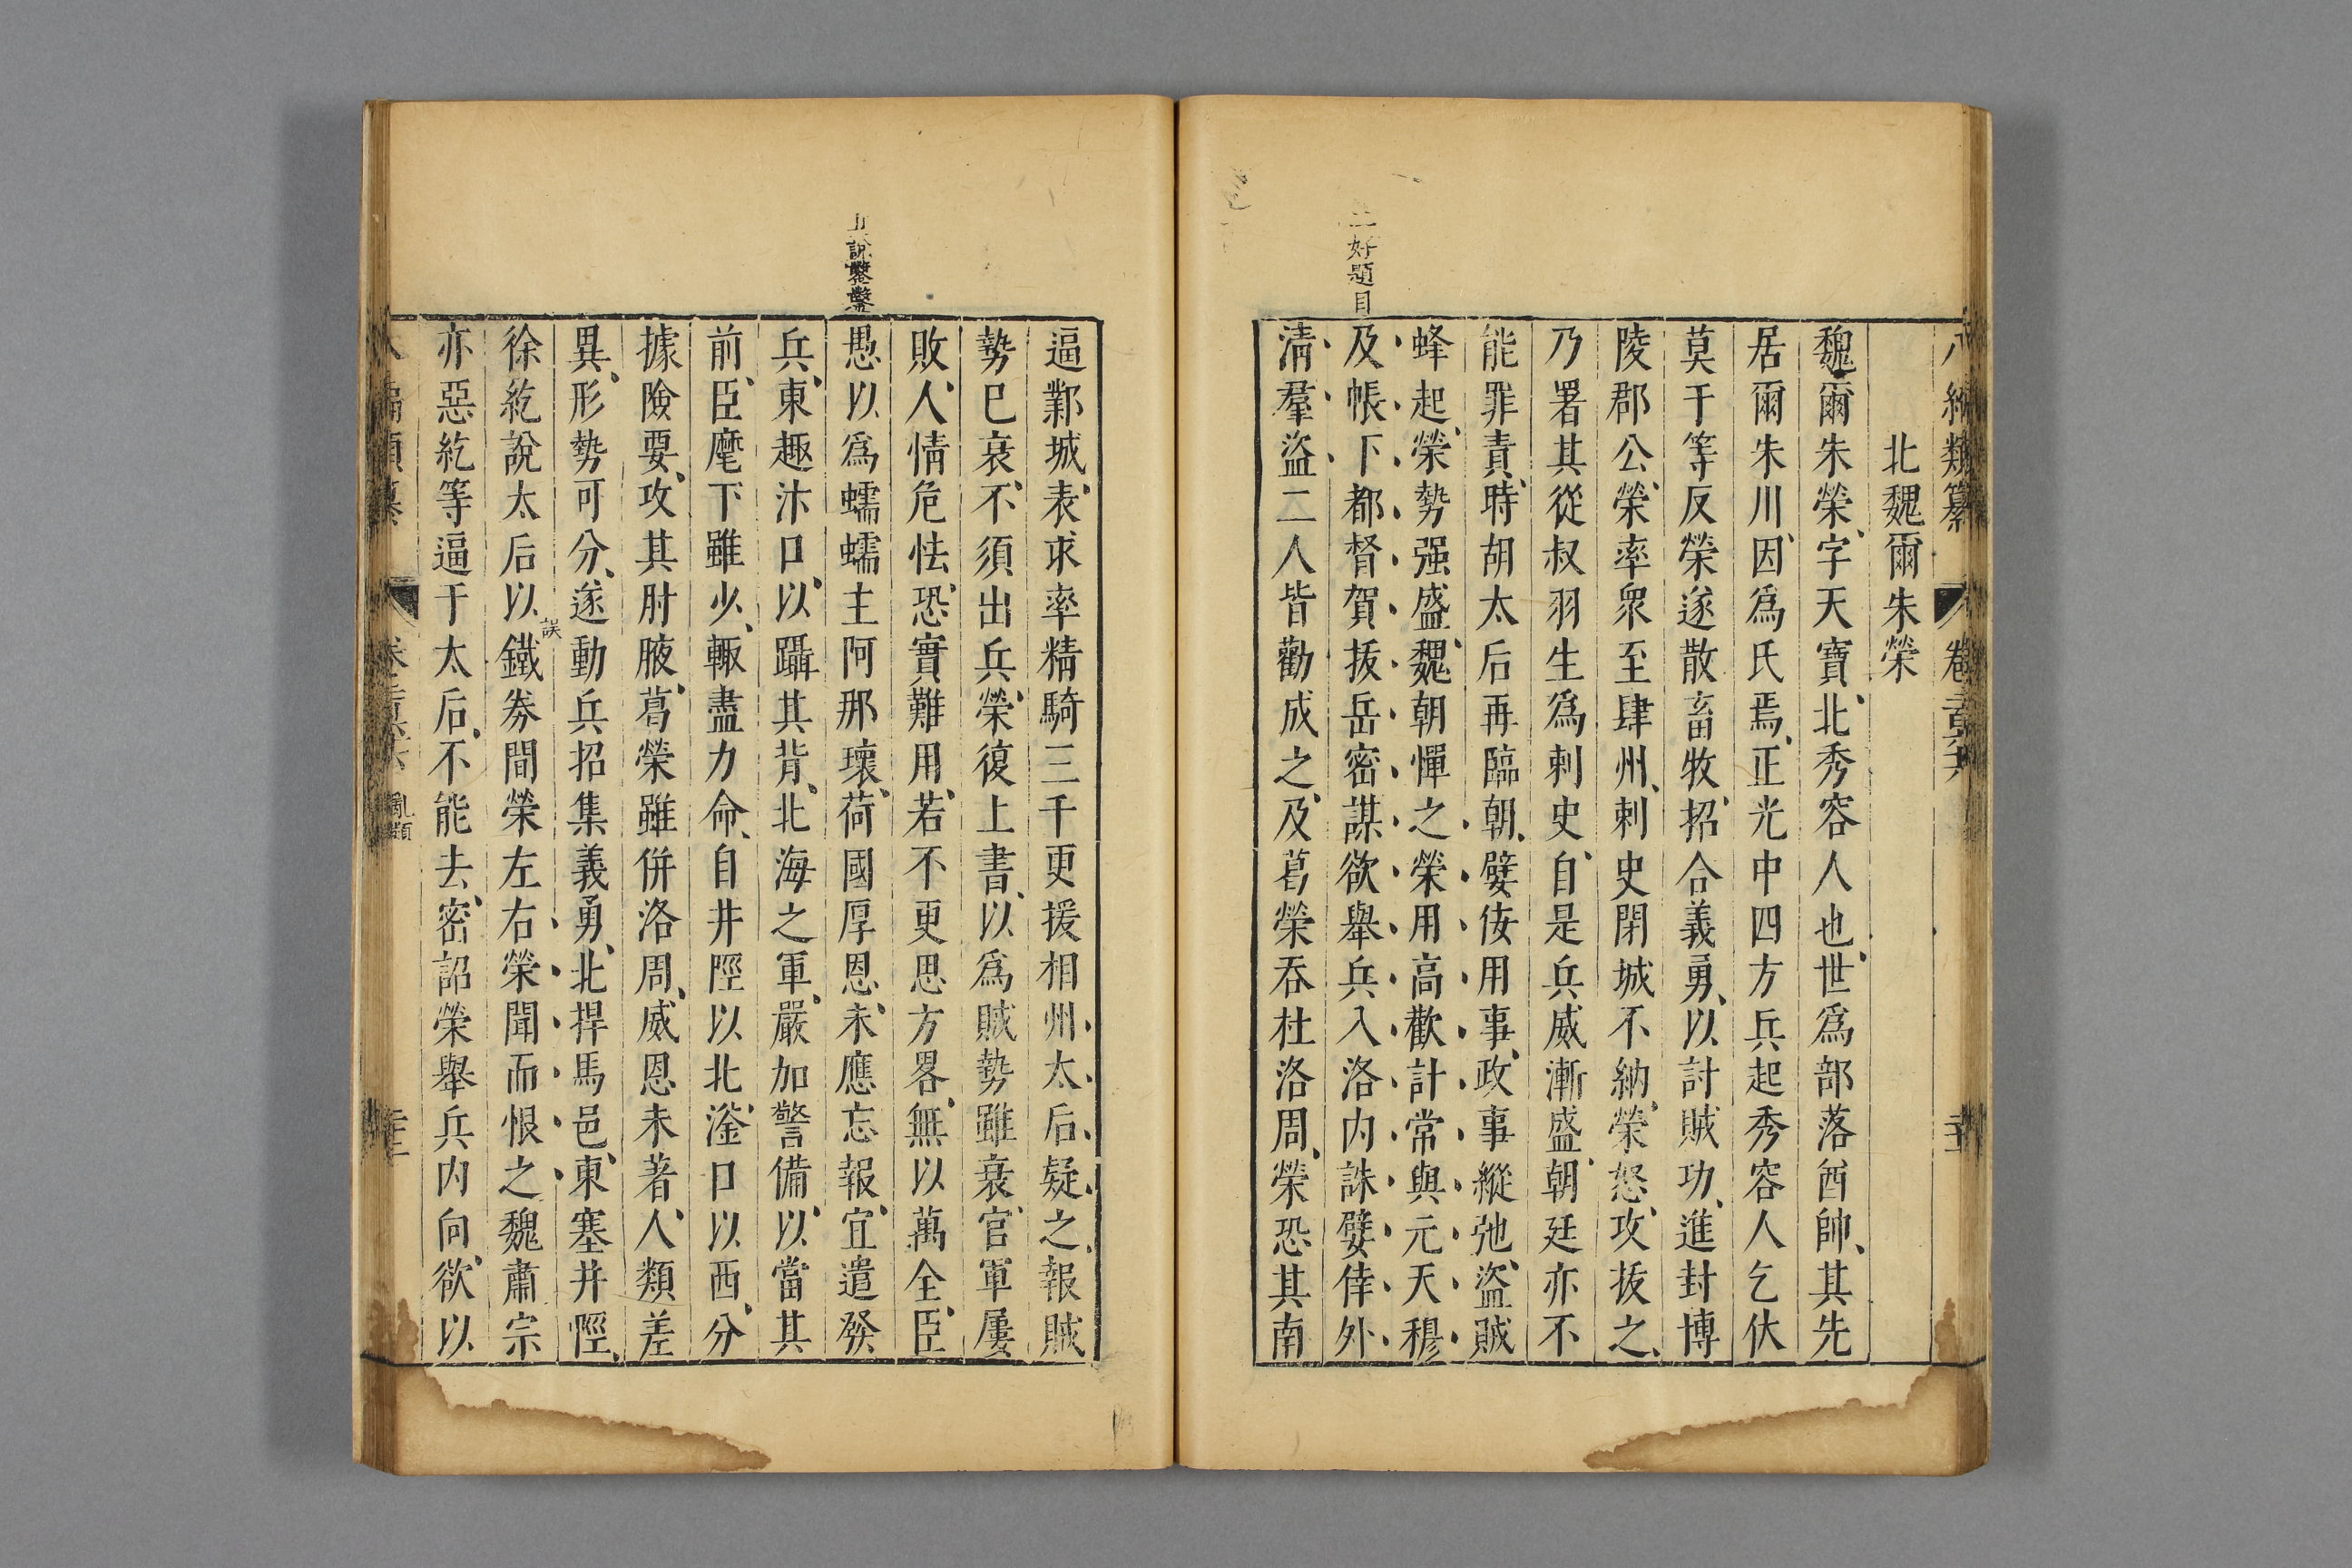 北魏爾朱榮
魏爾朱榮字天寶北秀容人也世為部落酋帥其先
居爾朱川因為氏焉正光中四方兵起秀容人乞伏
莫于等反榮遂散畜牧招合義勇以討賊功進封博
陵郡公榮率眾至肆州刺史閉城不納榮怒攻拔之
乃署其從叔羽生為刺史自是兵威漸盛朝廷亦不
能罪責時胡太后再臨朝嬖倖用事政事縱弛盜賊
蜂起榮勢强盛魏朝憚之榮用高歡計常與元天穆
及帳下都督賀拔岳密謀欲舉兵入洛內誅嬖倖外
清羣盜二人皆勸成之及葛榮吞杜洛周榮恐其南
好題目
逼鄴城表求率精騎三千更援相州太后疑之報賊
勢已衰不須出兵榮復上書以為賊勢雖衰官軍屢
敗人情危怯恐實難用若不更思方畧無以萬全臣
愚以為蠕蠕主阿那瓌荷國厚恩未應忘報宜遣發
兵東趣汴口以躡其背北海之軍嚴加警備以當其
前臣麾下雖少輙盡力命自井陘以北滏口以西分
據險要攻其肘腋葛榮雖併洛周威恩未著人類差
異形勢可分遂動兵招集義勇北捍馬邑東塞井陘
徐紇說太后以鐵券間榮左右榮聞而恨之魏肅宗
亦惡紇等逼于太后不能去密詔榮舉兵內向欲以
說鑿鑿
誤
亂類